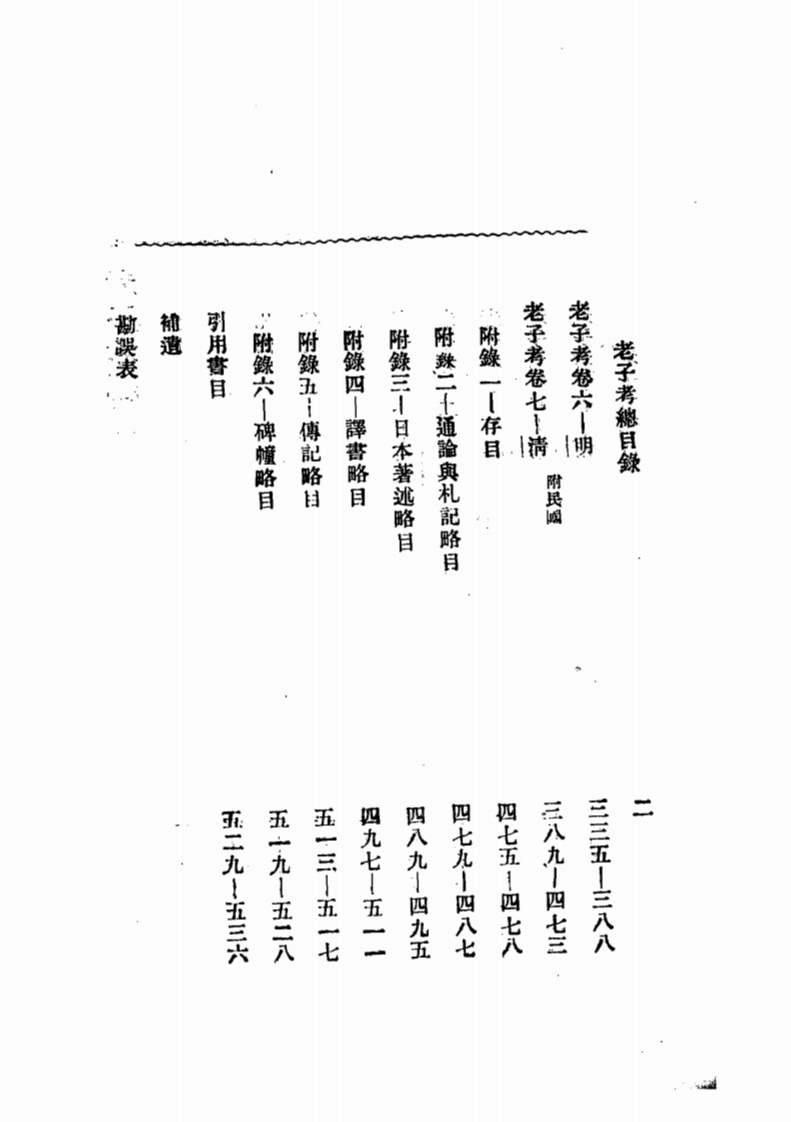 老子考總目錄 二
老子考卷六—明 三三五—三八八
老子考卷七—清 附民國 三八九—四七三
附錄一—存目 四七五—四七八
附錄二—通論與札記略目 四七九—四八七
附錄三—日本著述略目 四八九—四九五
附錄四—譯書略目 四九七—五一一
附錄五—傳記略目 五一三—五一七
附錄六—碑幢略目 五一九—五二八
引用書目 五二九—五三六
補遺
勘誤表